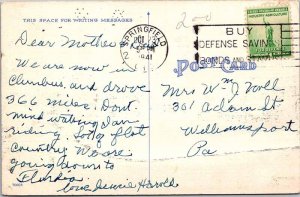 THIS SPACE FOR WRITING MESSAGES
Dear Mother
We are now in
Columbus, and drove
366 miles. Dont
mind walking dan
riding. Long flat
Country. We are
going down to
Florida
Love Jennie Harold
SPRINGFIELD
OCT
1941
BUY
DEFENSE SAVINGS
BONDS
POST CARD
Mrs Wm Noll
361 Adam St
Williamsport
Pa